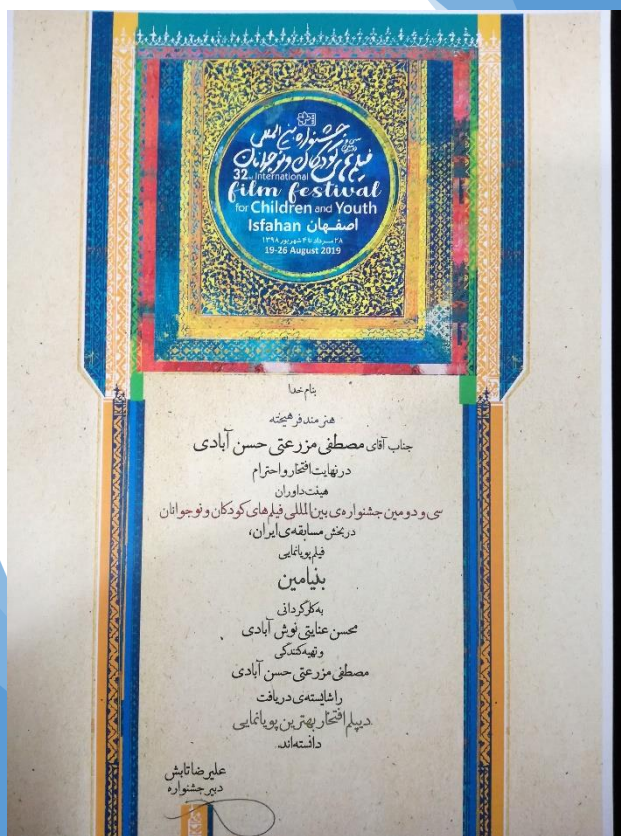 سی و دومین
جشنواره بین المللی
فیلم‌های کودکان و نوجوانان
32nd International
film festival
for Children and Youth
Isfahan اصفهان
۲۸ مرداد تا ۴ شهریور ۱۳۹۸
19-26 August 2019
بنام خدا
هنرمند فرهیخته
جناب آقای مصطفی مزرعتی حسن آبادی
در نهایت افتخار و احترام
هیئت داوران
سی و دومین جشنواره‌ی بین المللی فیلم‌های کودکان و نوجوانان
در بخش مسابقه‌ی ایران،
فیلم پویانمایی
بنیامین
به کارگردانی
محسن عنایتی نوش آبادی
و تهیه کنندگی
مصطفی مزرعتی حسن آبادی
را شایسته‌ی دریافت
دیپلم افتخار بهترین پویانمایی
دانسته‌اند.
علیرضا تابش
دبیر جشنواره